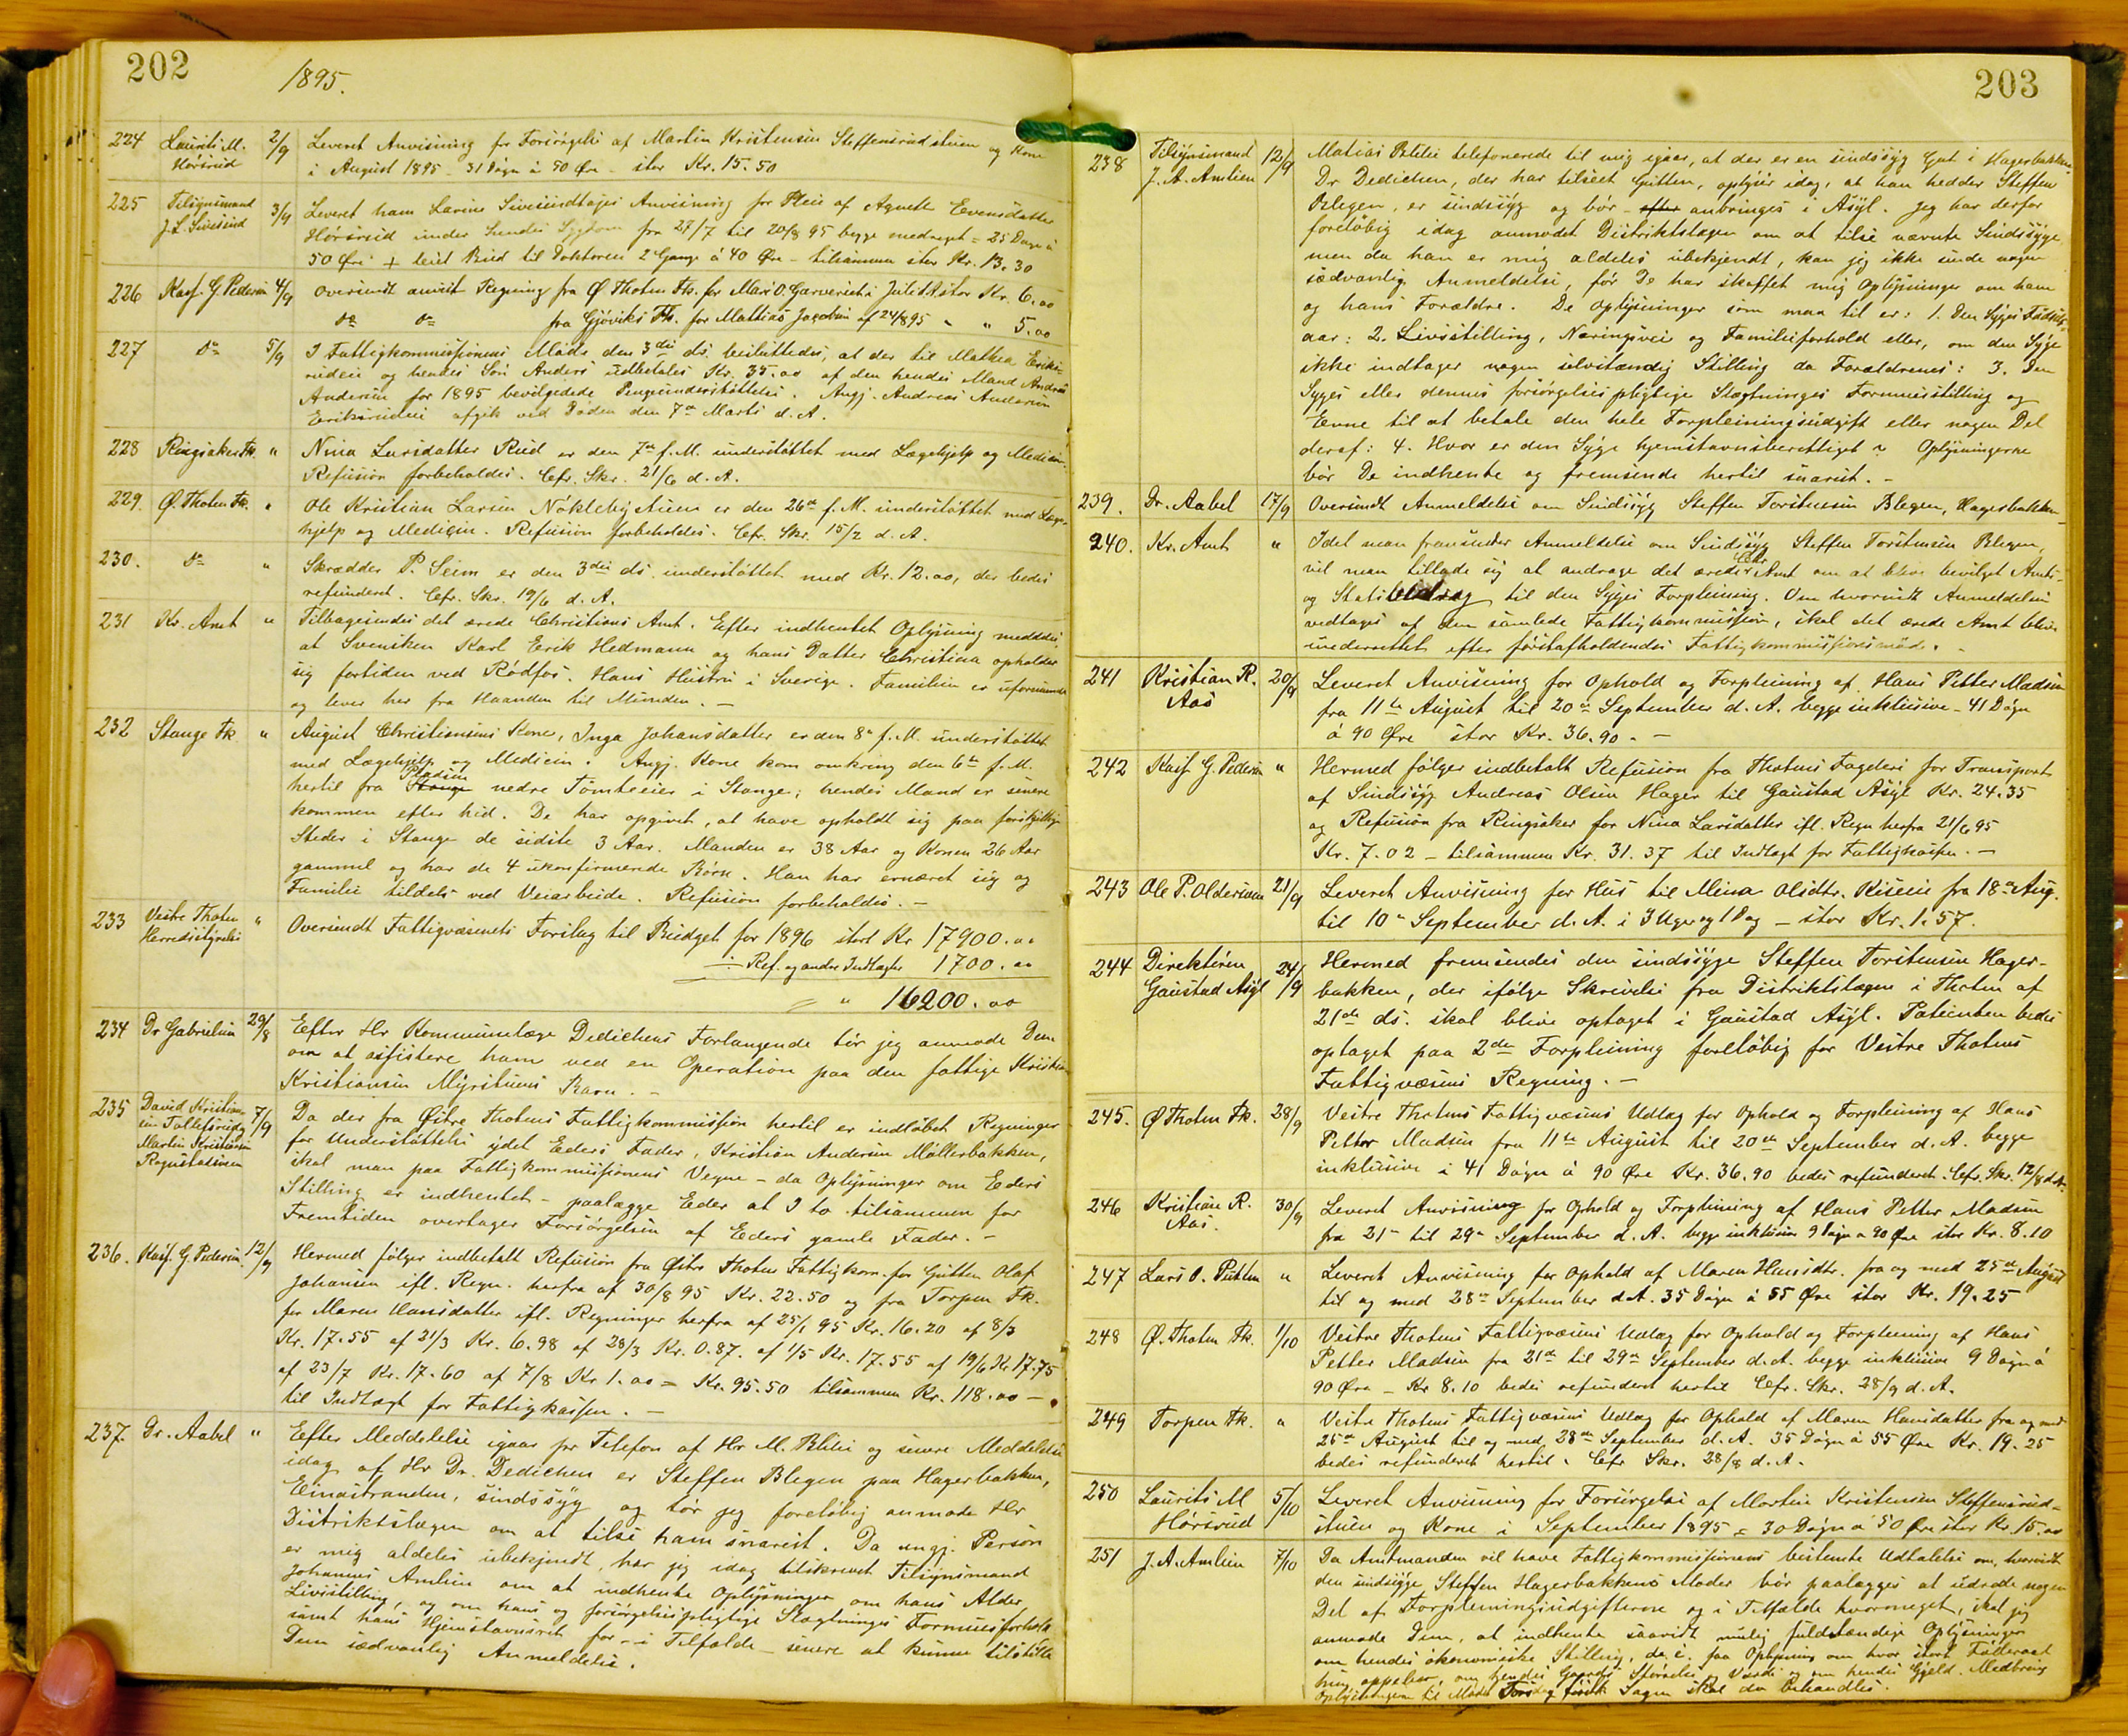 202
1895.
224 Laurits M. Hörsrud 2/9 Leveret Anvisning for Forsörgelse af Martin Kristensen Steffensrudstuen og Kone
i August 1895 - 31 Dögn à 50 Øre - stor Kr. 15.50
225 Tilsynsmand J. L. Sivesind 3/9 Leveret ham Larine Sivesindhajes Anvisning for Pleie af Agnethe Evensdatter
Hörsrud under hendes Sygdom fra 27/7 til 20/8 95 begge medregnet = 25 Dage à
50 Øre + leiet Bud til Doktoren 2 Gange à 40 Øre - tilsammen stor Kr. 13.30
226 Kasf. G. Pedersen 4/9 Oversendt anvist Regning fra Ø. Thoten Fk. for Mari O. Garveriet i Juli d.A. stor Kr. 6.00
do do fra Gjøviks Fk. for Mathias Jacobsen af 24/8 95 - " 5.00
227 do 5/9 I Fattigkommissionens Møde den 3die ds. besluttedes, at der til Mathea Eriks-
rudeie og hendes Sön Anders udbetales Kr. 35.00 af den hendes Mand Andreas
Andersen for 1895 bevilgede Pengeunderstöttelse. Angj. Andreas Andersen
Eriksrudeie afgik ved Döden den 7de Marts d. A.
228 Ringsaker Fk. " Nina Larsdatter Rud er den 7de f. M. understöttet med Lægehjelp og Medicin.
Refusion forbeholdes. Cfr. Skr. 21/6 d. A.
229. Ø. Thoten Fk. " Ole Kristian Larsen Nöklebystuen er den 26de f. M. understöttet med Læge-
hjelp og Medicin. Refusion forbeholdes. Cfr. Skr. 15/2 d. A.
230. do " Skrædder P. Seim er den 3die ds. understöttet med Kr. 12.00, der bedes
refunderet. Cfr. Skr. 19/6 d. A.
231 Kr. Amt " Tilbagesendes det ærede Christians Amt. Efter indhentet Oplysning meddeles,
at Svensken Karl Erik Hedmann og hans Datter Christina opholder
sig fortiden ved Rødfos. Hans Hustru i Sverige. Familien er uformuende
og lever her fra Haanden til Munden. -
232 Stange Fk. " August Christiansens Kone, Inga Johansdatter er den 8de f. M. understöttet
med Lægehjelp og Medicin. Angj. Kone kom omkring den 6te f. M.
hertil fra Pladsen Stange nedre Tomteeier i Stange; hendes Mand er senere
kommen efter hid. De har opgivet, at have opholdt sig paa forskjellige
Steder i Stange de sidste 3 Aar. Manden er 38 Aar og Konen 26 Aar
gammel og har de 4 ukonfirmerede Børn. Han har ernæret sig og
Familie tildels ved Veiarbeide. Refusion forbeholdes. -
233 Vestre Thoten Herredsstyrelse " Oversendt Fattigvæsenets Forslag til Budget for 1896 stort Kr 17900.00
÷ Ref. og andre Indtægter 1700.00
= " 16200.00
234 Dr Gabrielsen 29/8 Efter Hr Kommunelæge Dedichens Forlangende tör jeg anmode Dem
om at assistere ham ved en Operation paa den fattige Kristian
Kristiansen Myrstuens Barn. -
235 David Kristian- sen Tollefsrud og Martin Kristiansen Rognstadsveen 7/9 Da der fra Østre Thotens Fattigkommission hertil er indløbet Regninger
for Understöttelse ydet Eders Fader, Kristian Andersen Möllerbakken,
skal man paa Fattigkommissionens Vegne - da Oplysninger om Eders
Stilling er indhentet - paalægge Eder at I to tilsammen for
Fremtiden overtager Forsörgelsen af Eders gamle Fader. -
236. Kasf. G. Pedersen 12/9 Hermed fölger indbetalt Refusion fra Østre Thoten Fattigkom. for Gutten Olaf
Johansen ifl. Regn. herfra af 30/8 95 Kr. 22.50 og fra Torpen Fk.
for Maren Hansdatter ifl. Regninger herfra af 25/1 95 Kr. 16.20 af 8/3
Kr. 17.55 af 21/3 Kr. 6.98 af 28/3 Kr. 0.87. af 1/5 Kr. 17.55 af 19/6 Kr. 17.75
af 23/7 Kr. 17.60 af 7/8 Kr 1.00 = Kr. 95.50 tilsammen Kr. 118.00 -
til Indtægt for Fattigkassen. -
237. Dr. Aabel " Efter Meddelelse igaar pr Telefon af Hr M. Blilie og senere Meddelelse
idag af Hr Dr. Dedichen er Steffen Blegen paa Hagerbakken,
Einastranden, sindssyg og tör jeg foreløbig anmode Hr
Distriktslægen om at tilse ham snarest. Da angj. Person
er mig aldeles ubekjendt, har jeg idag tilskrevet Tilsynsmand
Johannes Amlien om at indhente Oplysninger om hans Alder,
Livsstilling, og om hans og forsörgelsespligtige Slægtninges Formuesforholde
samt hans Hjemstavnsret for - i Tilfælde - senere at kunne tilstille
Dem sædvanlig Anmeldelse.
203
238 Tilsynsmand J. A. Amlien 12/9 Matias Blilie telefonerede til mig igaar, at der er en sindssyg Gut i Hagerbakken.
Dr Dedichen, der har tilseet Gutten, oplyser idag, at han hedder Steffen
Blegen, er sindssyg og bör - efter anbringes i Asyl. Jeg har derfor
foreløbig idag anmodet Distriktslægen om at tilse nævnte Sindssyge,
men da han er mig aldeles ubekjendt, kan jeg ikke sende nogen
sædvanlig Anmeldelse, før De har skaffet mig Oplysninger om ham
og hans Forældre. De Oplysninger som maa til er: 1. Den Syges Fødsels-
aar: 2. Livsstilling, Næringsvei og Familieforhold eller, om den Syge
ikke indtager nogen selvstændig Stilling da Forældrenes: 3. Den
Syges eller dennes forsørgelsespligtige Slægtninges Formuesstilling og
Evne til at betale den hele Forpleiningsudgift eller nogen Del
deraf: 4. Hvor er den Syge hjemstavnsberettiget? Oplysningerne
bör De indhente og fremsende hertil snarest. -
239. Dr. Aabel 17/9 Oversendt Anmeldelse om Sindssyg Steffen Torstensen Blegen, Hagerbakken -
240. Kr. Amt " Idet man fremsender Anmeldelse om Sindssyg Steffen Torstensen Blegen,
vil man tillade sig at andrage det ærede Chr. Amt om at blive bevilget Amts-
og Statsbidrag til den Syges Forpleining. Om hvorvidt Anmeldelsen
vedtages af den samlede Fattigkommission, skal det ærede Amt blive
underrettet efter förstafholdendes Fattigkommissionsmöde. -
241 Kristian R. Aas 20/9 Leveret Anvisning for Ophold og Forpleining af Hans Petter Madsen
fra 11te August til 20de September d. A. begge inklusive - 41 Dögn
à 90 Øre stor Kr. 36.90. -
242 Kasf. G. Pedersen " Hermed fölger indbetalt Refusion fra Thotens Fogderi for Transport
af Sindssyg Andreas Olsen Hager til Gaustad Asyl Kr. 24.35
og Refusion fra Ringsaker for Nina Larsdatter ifl. Regn herfra 21/6 95
Kr. 7.02 - tilsammen Kr. 31.37 til Indtægt for Fattigkassen. -
243 Ole P. Oldersveen 21/9 Leveret Anvisning for Hus til Mina Olsdtr. Riseeie fra 18de Aug.
til 10de September d. A. i 3 Uger og 1 Dag - stor Kr. 1.57.
244 Direktören Gaustad Asyl 24/9 Hermed fremsendes den sindssyge Steffen Torstensen Hager-
bakken, der ifölge Skrivelse fra Distriktslægen i Thoten af
21de ds. skal blive optaget i Gaustad Asyl. Patienten bedes
optaget paa 2den Forpleining foreløbig for Vestre Thotens
Fattigvæsens Regning. -
245. Ø Thoten Fk. 28/9 Vestre Thotens Fattigvæsens Udlæg for Ophold og Forpleining af Hans
Petter Madsen fra 11te August til 20de September d. A. begge
inklusive i 41 Dögn à 90 Øre Kr. 36.90 bedes refunderet. Cfr. Skr. 12/8 d.A.
246 Kristian R. Aas. 30/9 Leveret Anvisning for Ophold og Forpleining af Hans Petter Madsen
fra 21de til 29de September d. A. begge inklusive 9 Dögn à 90 Øre stor Kr. 8.10
247 Lars O. Putten " Leveret Anvisning for Ophold af Maren Hansdtr. fra og med 25de August
til og med 28de September d.A. 35 Dögn à 55 Øre stor Kr. 19.25
248 Ø. Thoten Fk. 1/10 Vestre Thotens Fattigvæsens Udlæg for Ophold og Forpleining af Hans
Petter Madsen fra 21de til 29de September d.A. begge inklusive 9 Dögn à
90 Øre - Kr 8.10 bedes refunderet hertil Cfr. Skr. 28/9 d. A.
249 Torpen Fk. " Vestre Thotens Fattigvæsens Udlæg for Ophold af Maren Hansdatter fra og med
25de August til og med 28de September d. A. 35 Dögn à 55 Øre Kr. 19.25
bedes refunderet hertil. Cfr Skr. 28/8 d. A.
250 Laurits M Hörsrud 5/10 Leveret Anvisning for Forsörgelse af Martin Kristensen Steffensrud-
stuen og Kone i September 1895 = 30 Dögn à 50 Øre stor Kr. 15.00
251 J. A. Amlien 7/10 Da Amtmanden vil have Fattigkommissionens bestemte Udtalelse om, hvorvidt
den sindssyge Steffen Hagerbakkens Moder bör paalægges at udrede nogen
Del af Forpleiningsudgifterne og i Tilfælde hvormeget, skal jeg
anmode Dem, at indhente saavidt mulig fuldstændige Oplysninger
om hendes økonomiske Stilling, d.e. faa Oplysning om hvor stort Födevad
hun oppebær, om hendes Gaards Størrelse og Værdi og om hendes Gjeld. Medbring
Oplysningerne til Mødet Torsdag först Sagen skal da behandles.